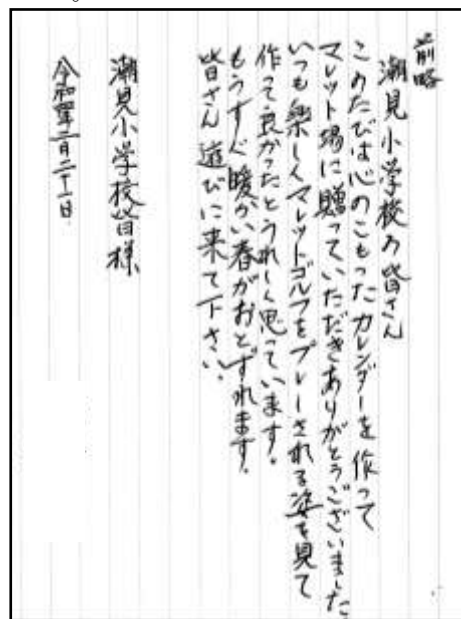 前略
潮見小学校の皆さん
このたびは心のこもったカレンダーを作って
マレット場に贈っていただきありがとうございました
いつも楽しくマレットゴルフをプレーされる姿を見て
作って良かったとうれしく思っています。
もうすぐ暖かい春がおとずれます。
皆さん遊びに来て下さい。
潮見小学校皆様
令和四年二月二十一日